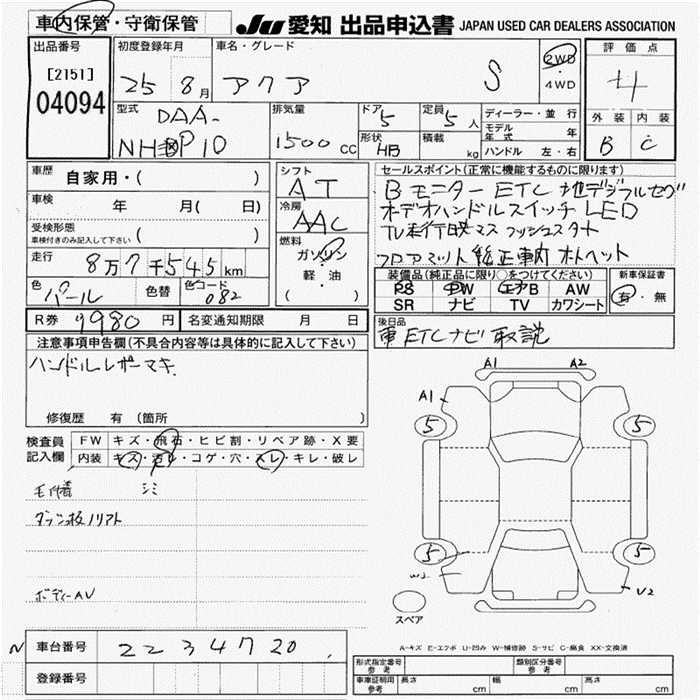 車内保管・守衛保管
JU 愛知 出品申込書 JAPAN USED CAR DEALERS ASSOCIATION
出品番号
[2151]
04094
初度登録年月
25 8月
車名・グレード
アクア S
2WD
・
4WD
評価点
4
外装 内装
B C
型式
DAA-
NHP10
排気量
1500 CC
ドア
5
定員
5人
形状
HB
積載
kg
ディーラー・並行
モデル年式 年
ハンドル 左・右
車歴
自家用・( )
車検 年 月( 日)
受検形態
車検付きのみ記入して下さい ( )
走行
8万7千545km
色
パール
色替
色コード
082
シフト
AT
冷房
AAC
燃料
ガソリン
軽・油
( )
セールスポイント(正常に機能するものに限ります)
Bモニター ETC 地デジフルセグ
オーデオハンドルスイッチ LED
フロアマット 純正車内
装備品(純正品に限り○をつけてください)
PS PW エアB AW
SR ナビ TV カワシート
新車保証書
有・無
R券 9980円
名変通知期限 月 日
後日品
ETCナビ取説
注意事項申告欄(不具合内容等は具体的に記入して下さい)
ハンドルレザーマキ
修復歴 有(箇所 )
検査員
記入欄
FW キズ・飛石・ヒビ割・リペア跡・X要
内装 キズ・汚レ・コゲ・穴・スレ・キレ・破レ
シミ
ボディーAV
A1 A2
A1
5 5
5 5
W2
U2
スペア
A-キズ E-エクボ U-凹み W-補修跡 S-サビ C-腐食 XX-交換済
N 車台番号 2234720
登録番号
形式指定番号
参考
類別区分番号
参考
車庫証明用
参考
長さ cm 幅 cm 高さ cm